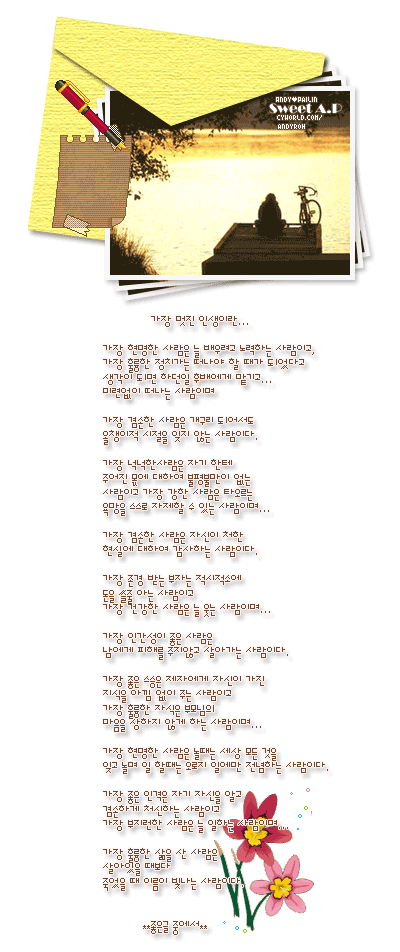 ANDY♥PAILIN
Sweet A.P
CYWORLD.COM/
ANDYROH
가장 멋진 인생이란...
가장 현명한 사람은 늘 배우려고 노력하는 사람이고,
가장 훌륭한 정치가는 떠나야 할 때가 되었다고
생각이 되면 하던일 후배에게 맡기고...
미련없이 떠나는 사람이며
가장 겸손한 사람은 개구리 되어서도
올챙이적 시절을 잊지 않는 사람이다.
가장 넉넉한사람은 자기 한테
주어진 몫에 대하여 불평불만이 없는
사람이고 가장 강한 사람은 타오르는
욕망을 스스로 자제할 수 있는 사람이며...
가장 겸손한 사람은 자신이 처한
현실에 대하여 감사하는 사람이다.
가장 존경 받는 부자는 적시적소에
돈을 쓸줄 아는 사람이고
가장 건강한 사람은 늘 웃는 사람이며...
가장 인간성이 좋은 사람은
남에게 피해를 주지않고 살아가는 사람이다.
가장 좋은 스승은 제자에게 자신이 가진
지식을 아낌 없이 주는 사람이고
가장 훌륭한 자식은 부모님의
마음을 상하지 않게 하는 사람이며...
가장 현명한 사람은 놀때는 세상 모든 것을
잊고 놀며 일 할때는 오로지 일에만 전념하는 사람이다.
가장 좋은 인격은 자기 자신을 알고
겸손하게 처신하는 사람이고
가장 부지런한 사람은 늘 일하는 사람이며...
가장 훌륭한 삶을 산 사람은
살아있을 때보다
죽었을 때 이름이 빛나는 사람이다.
**좋은글 중에서**